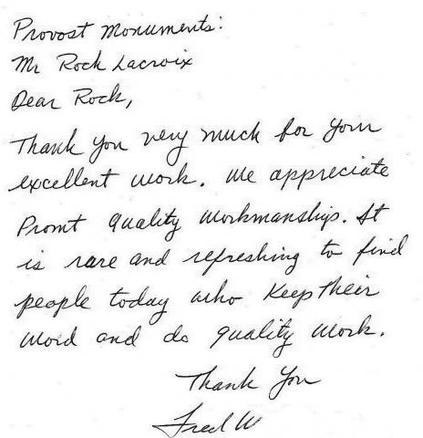 Provost Monuments:
Mr Rock Lacroix
Dear Rock,
Thank you very much for your
excellent work. We appreciate
Promt quality workmanship. It
is rare and refreshing to find
people today who keep their
word and do quality work.
Thank You
Fred W